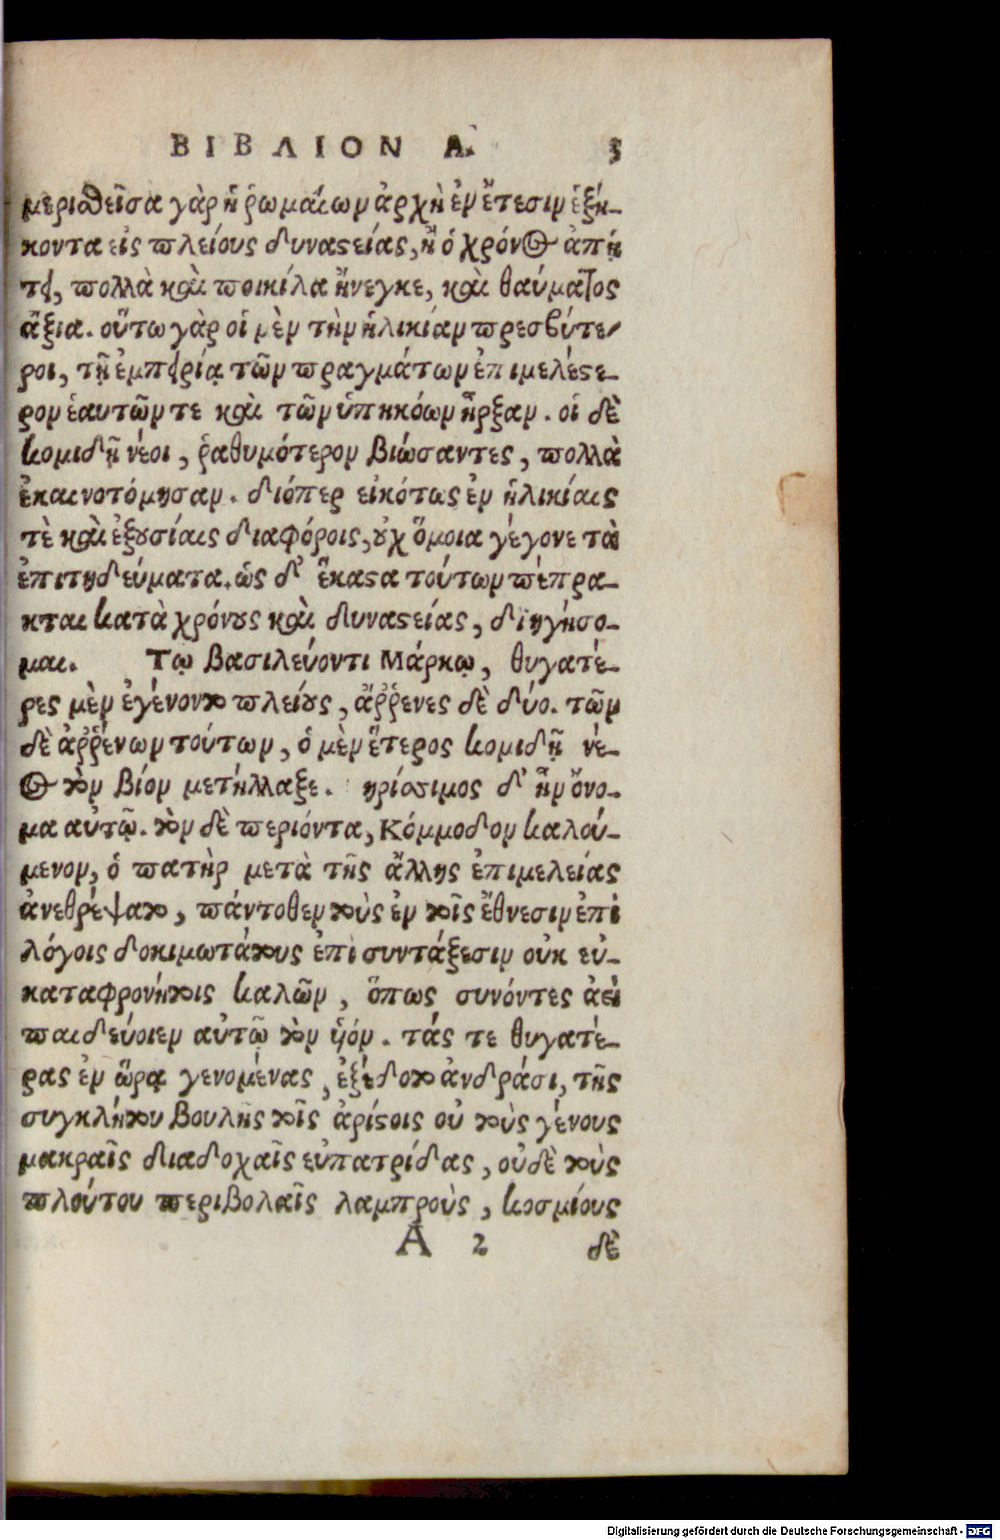 ΒΙΒΛΙΟΝ Α. 3
μεριθεῖσα γὰρ ἡ ῥωμαίων ἀρχὴ ἐν ἔτεσιν ἑξή-
κοντα εἰς πλείους δυναστείας, ἢ ὁ χρόνος ἀπῄ
τει, πολλὰ καὶ ποικίλα ἤνεγκε, καὶ θαύματος
ἄξια. οὕτω γὰρ οἱ μὲν τὴν ἡλικίαν πρεσβύτε-
ροι, τῇ ἐμπειρίᾳ τῶν πραγμάτων ἐπιμελέστε-
ρον ἑαυτῶν τε καὶ τῶν ὑπηκόων ἦρξαν. οἱ δὲ
κομιδῇ νέοι, ῥαθυμότερον βιώσαντες, πολλὰ
ἐκαινοτόμησαν. διόπερ εἰκότως ἐν ἡλικίαις
τὲ καὶ ἐξουσίαις διαφόροις, οὐχ ὅμοια γέγονε τὰ
ἐπιτηδεύματα. ὡς δ' ἕκαστα τούτων πέπρα-
κται κατὰ χρόνους καὶ δυναστείας, διηγήσο-
μαι. Τῳ βασιλεύοντι Μάρκῳ, θυγατέ-
ρες μὲν ἐγένοντο πλείους, ἄῤῥενες δὲ δύο. τῶν
δὲ ἀῤῥένων τούτων, ὁ μὲν ἕτερος κομιδῇ νέ-
ος τὸν βίον μετήλλαξε. ηρίσσιμος δ' ἦν ὄνο-
μα αὐτῷ. τὸν δὲ περιόντα, Κόμμοδον καλού-
μενον, ὁ πατὴρ μετὰ τῆς ἄλλης ἐπιμελείας
ἀνεθρέψατο, πάντοθεν τοὺς ἐν τοῖς ἔθνεσιν ἐπὶ
λόγοις δοκιμωτάτους ἐπὶ συντάξεσιν οὐκ εὐ-
καταφρονήτοις καλῶν, ὅπως συνόντες ἀεὶ
παιδεύοιεν αὐτῷ τὸν ὑόν. τάς τε θυγατέ-
ρας ἐν ὥρᾳ γενομένας, ἐξέδοτο ἀνδράσι, τῆς
συγκλήτου βουλῆς τοῖς ἀρίστοις οὐ τοὺς γένους
μακραῖς διαδοχαῖς εὐπατρίδας, οὐδὲ τοὺς
πλούτου περιβολαῖς λαμπροὺς, κοσμίους
A 2 δὲ
Digitalisierung gefördert durch die Deutsche Forschungsgemeinschaft - DFG